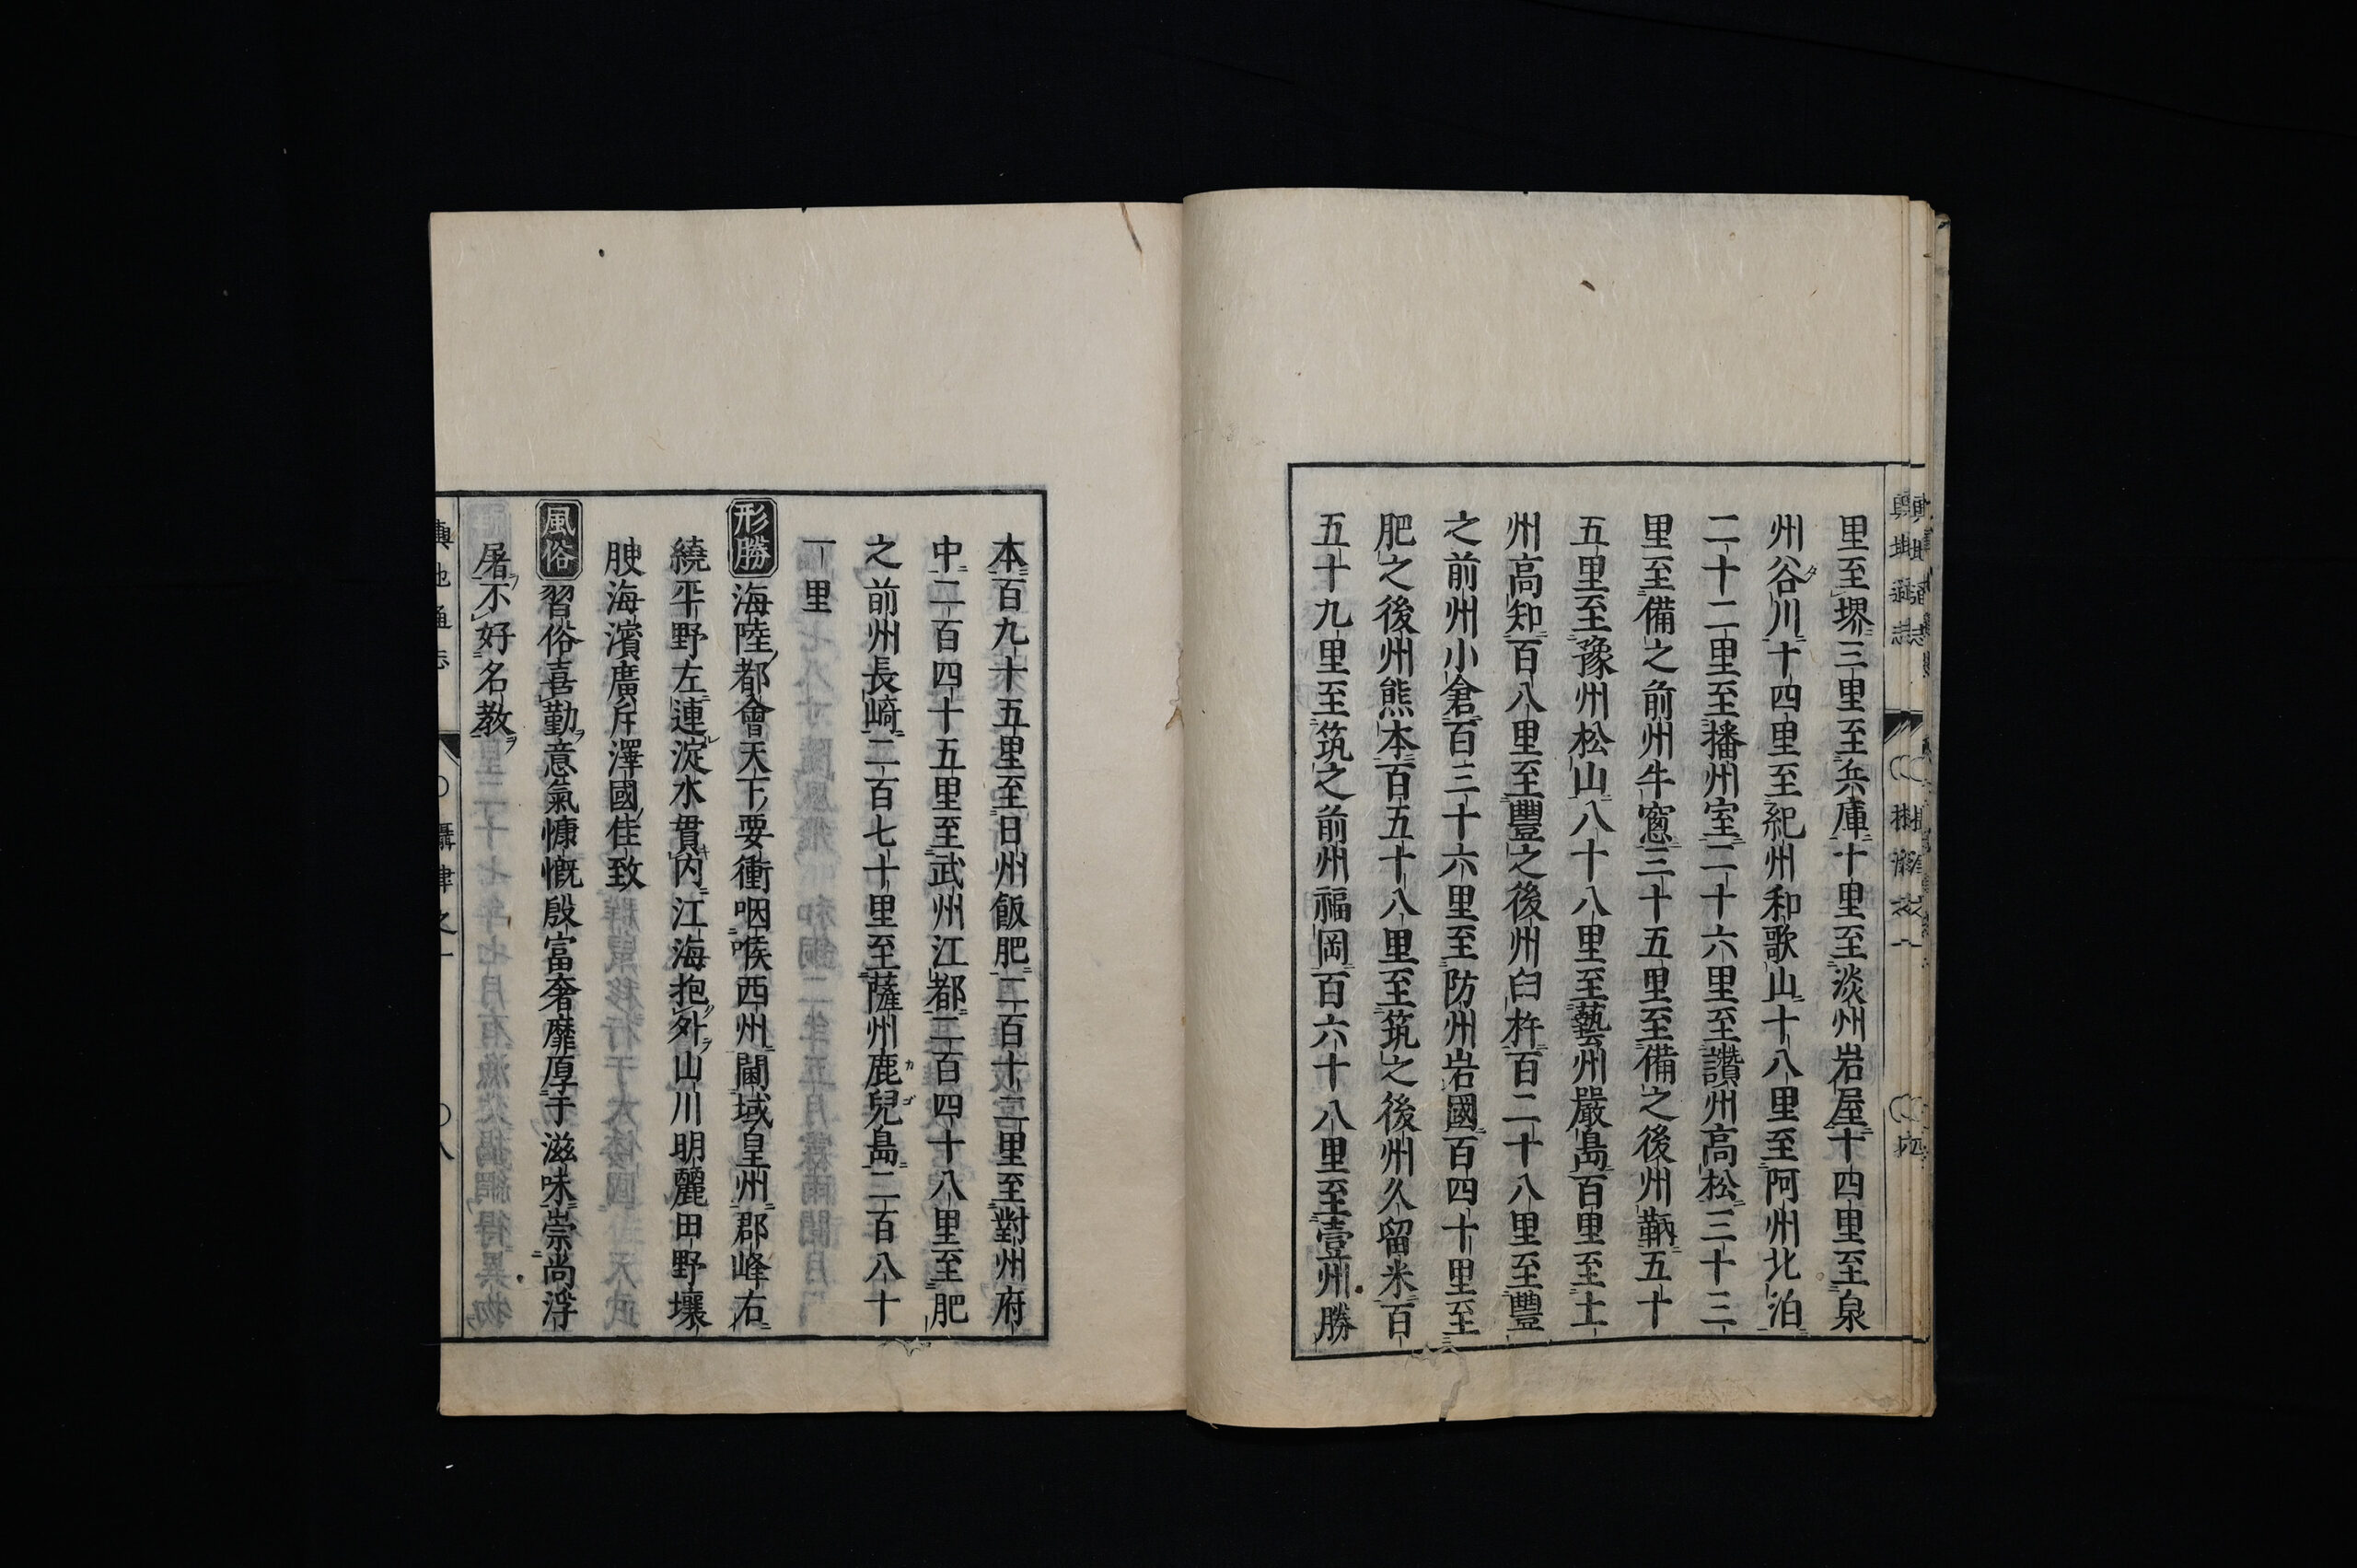 里至堺三里至兵庫十里至淡州岩屋十四里至泉
州谷川十四里至紀州和歌山十八里至阿州北泊
二十二里至播州室二十六里至讚州高松三十三
里至備之前州牛窓三十五里至備之後州鞆五十
五里至豫州松山八十八里至藝州嚴島百里至土
州高知百八里至豐之後州臼杵百二十八里至豐
之前州小倉百三十六里至防州岩國百四十里至
肥之後州熊本百五十八里至筑之後州久留米百
五十九里至筑之前州福岡百六十八里至壹州勝
本百九十五里至日州飫肥二百十二里至對州府
中二百四十五里至武州江都二百四十八里至肥
之前州長崎二百七十里至薩州鹿兒島二百八十
一里
形勝 海陸都會天下要衝咽喉西州閫域皇州郡峰右
繞平野左連淀水貫内江海抱外山川明麗田野壤
腴海濱廣斥澤國佳致
風俗 習俗喜勤意氣慷慨殷富奢靡厚于滋味崇尚浮
屠不好名教